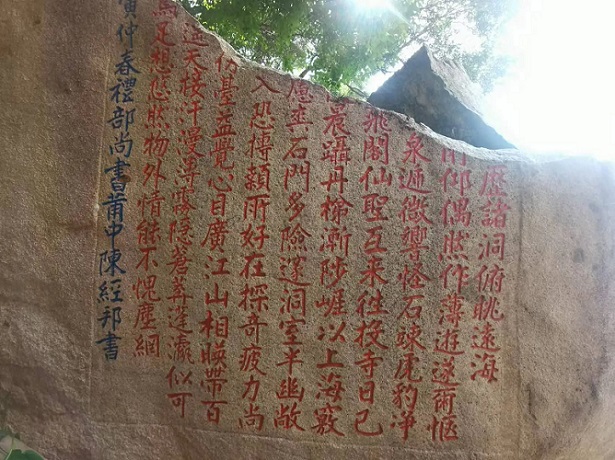 歷諸洞俯眺遠海
仰偶然作薄遊遂愜
泉遞微響怪石竦虎豹淨
飛閣仙聖互來往投寺日已
躡丹梯漸陟崕以上海竅
石門多險邃洞室半幽敞
入恐搏顙所好在探奇疲力尚
臺益覺心目廣江山相暎帶百
天接汗漫霧隱蒼莽蓬瀛似可
足想悠然物外情能不愧塵網
寅仲春禮部尚書莆中陳經邦書